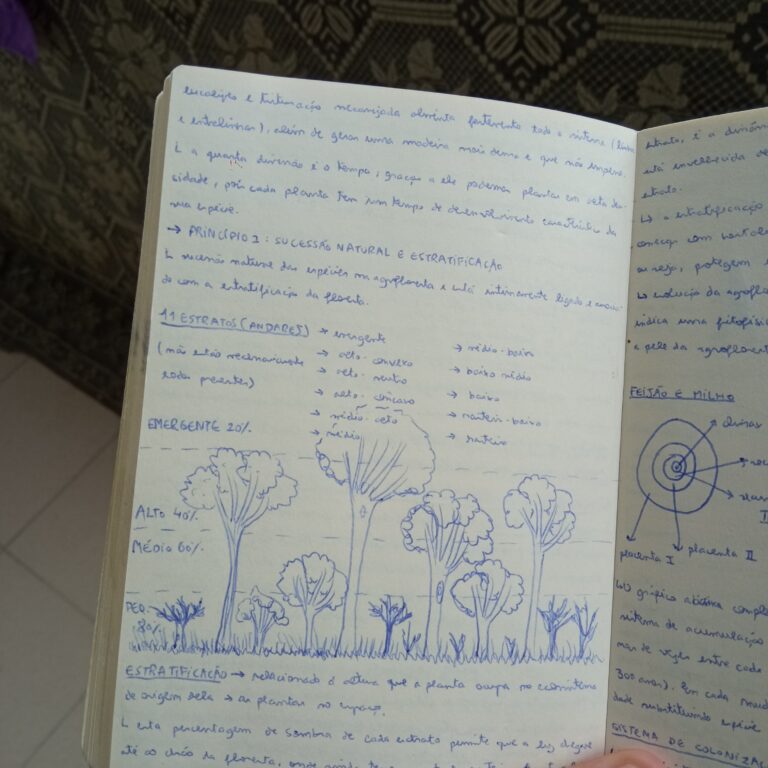 eucalipto e trituração mecanizada alimenta fortemente todo o sistema (linhas
e entrelinhas), além de gerar uma madeira mais densa e que não empena.
L a quarta dimensão é o tempo, graças a ele podemos plantar em alta den-
sidade, pois cada planta tem um tempo de desenvolvimento característico da
sua espécie.
→ PRINCÍPIO I: SUCESSÃO NATURAL E ESTRATIFICAÇÃO
L sucessão natural das espécies na agrofloresta e está intimamente ligada e associa-
da com a estratificação da floresta.
11 ESTRATOS (ANDARES) → emergente
(não estão necessariamente
todos presentes)
→ alto-convexo
→ alto-neutro
→ alto-côncavo
→ médio-alto
→ médio
→ médio-baixo
→ baixo médio
→ baixo
→ rasteiro-baixo
→ rasteiro
EMERGENTE 20%
ALTO 40%
MÉDIO 60%
80%
ESTRATIFICAÇÃO → relacionado à altura que a planta ocupa no ecossistema
de origem dela → as plantas no espaço.
L esta percentagem de sombra de cada estrato permite que a luz chegue
até o chão da floresta, onde ainda
estrato, é a dinâm
está envelhecida de
estrato.
↳ a estratificação
começa com
ou seja, protegem
↳ evolução da agroflo
indica uma fitofisi
a pele da agroflorest
FEIJÃO E MILHO
placenta I
placenta II
↳ gráfico abaixo comple
sistema de acumulação
mas de vezes entre cada
300 anos). Em cada
dade substituindo espécie
SISTEMA DE COLONIZAÇ